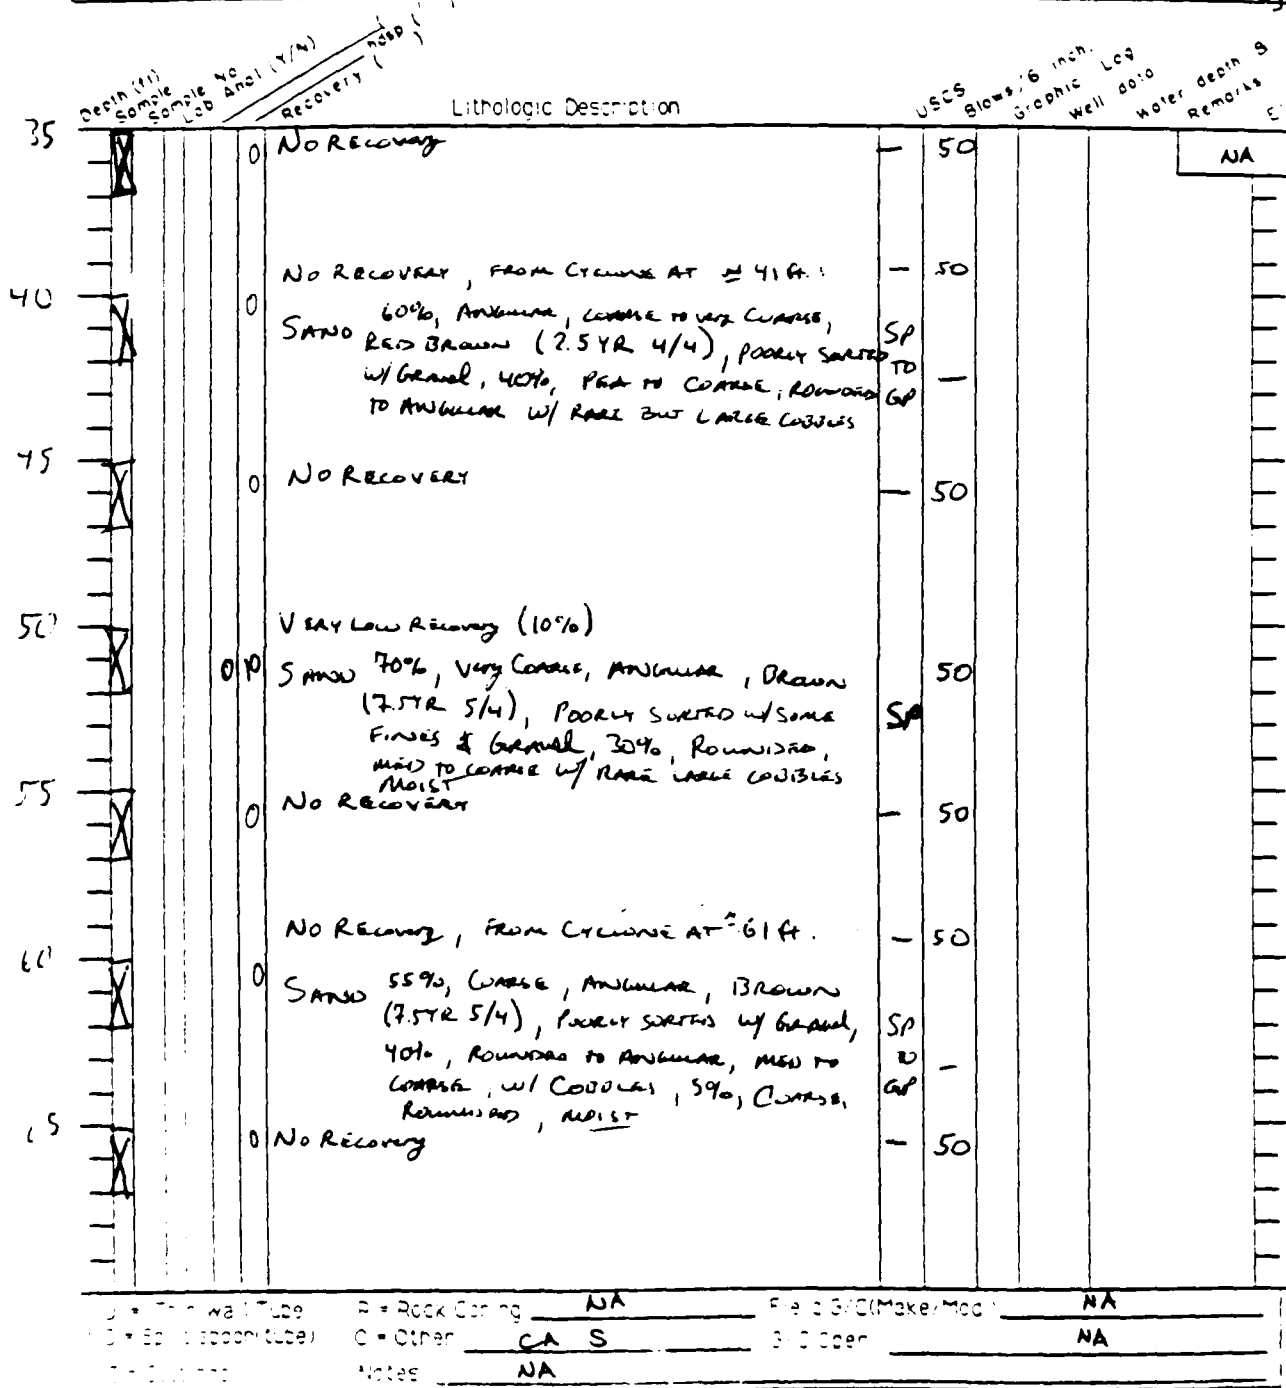 Depth (ft) Sample Sample No Lab Anal (Y/N) Recovery Lithologic Description USCS Blows/6 inch. Graphic Log Well data Water depth Remarks
35 0 No Recovery — 50 NA
No Recovery, From Cyclone at ≈ 41 ft. — 50
40 0
Sand 60%, Angular, coarse to very coarse, SP
Red Brown (2.5 YR 4/4), Poorly sorted TO
w/ Gravel, 40%, Pea to coarse, Rounded GP —
to Angular w/ Rare but large cobbles
45 0 No Recovery — 50
50 Very Low Recovery (10%)
0 10 Sand 70%, Very Coarse, Angular, Brown 50
(7.5YR 5/4), Poorly sorted w/ some SP
Fines & Gravel, 30%, Rounded,
med to coarse w/ rare large cobbles
Moist
55 0 No Recovery — 50
No Recovery, From Cyclone at ≈ 61 ft. — 50
60 0
Sand 55%, Coarse, Angular, Brown
(7.5YR 5/4), Poorly sorted w/ Gravel, SP
40%, Rounded to Angular, med to TO —
coarse, w/ Cobbles, 5%, Coarse, GP
Rounded, moist
65 0 No Recovery — 50
Wall Tube R = Rock Coring NA (Make/Mod.) NA
spoon (tube) O = Other CA S NA
Notes NA